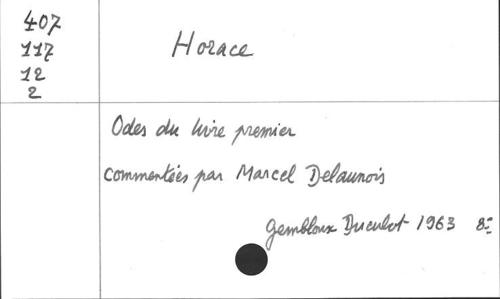 407
117
12
2
Horace
Odes du livre premier
commentées par Marcel Delaunois
Gembloux Duculot 1963 8°